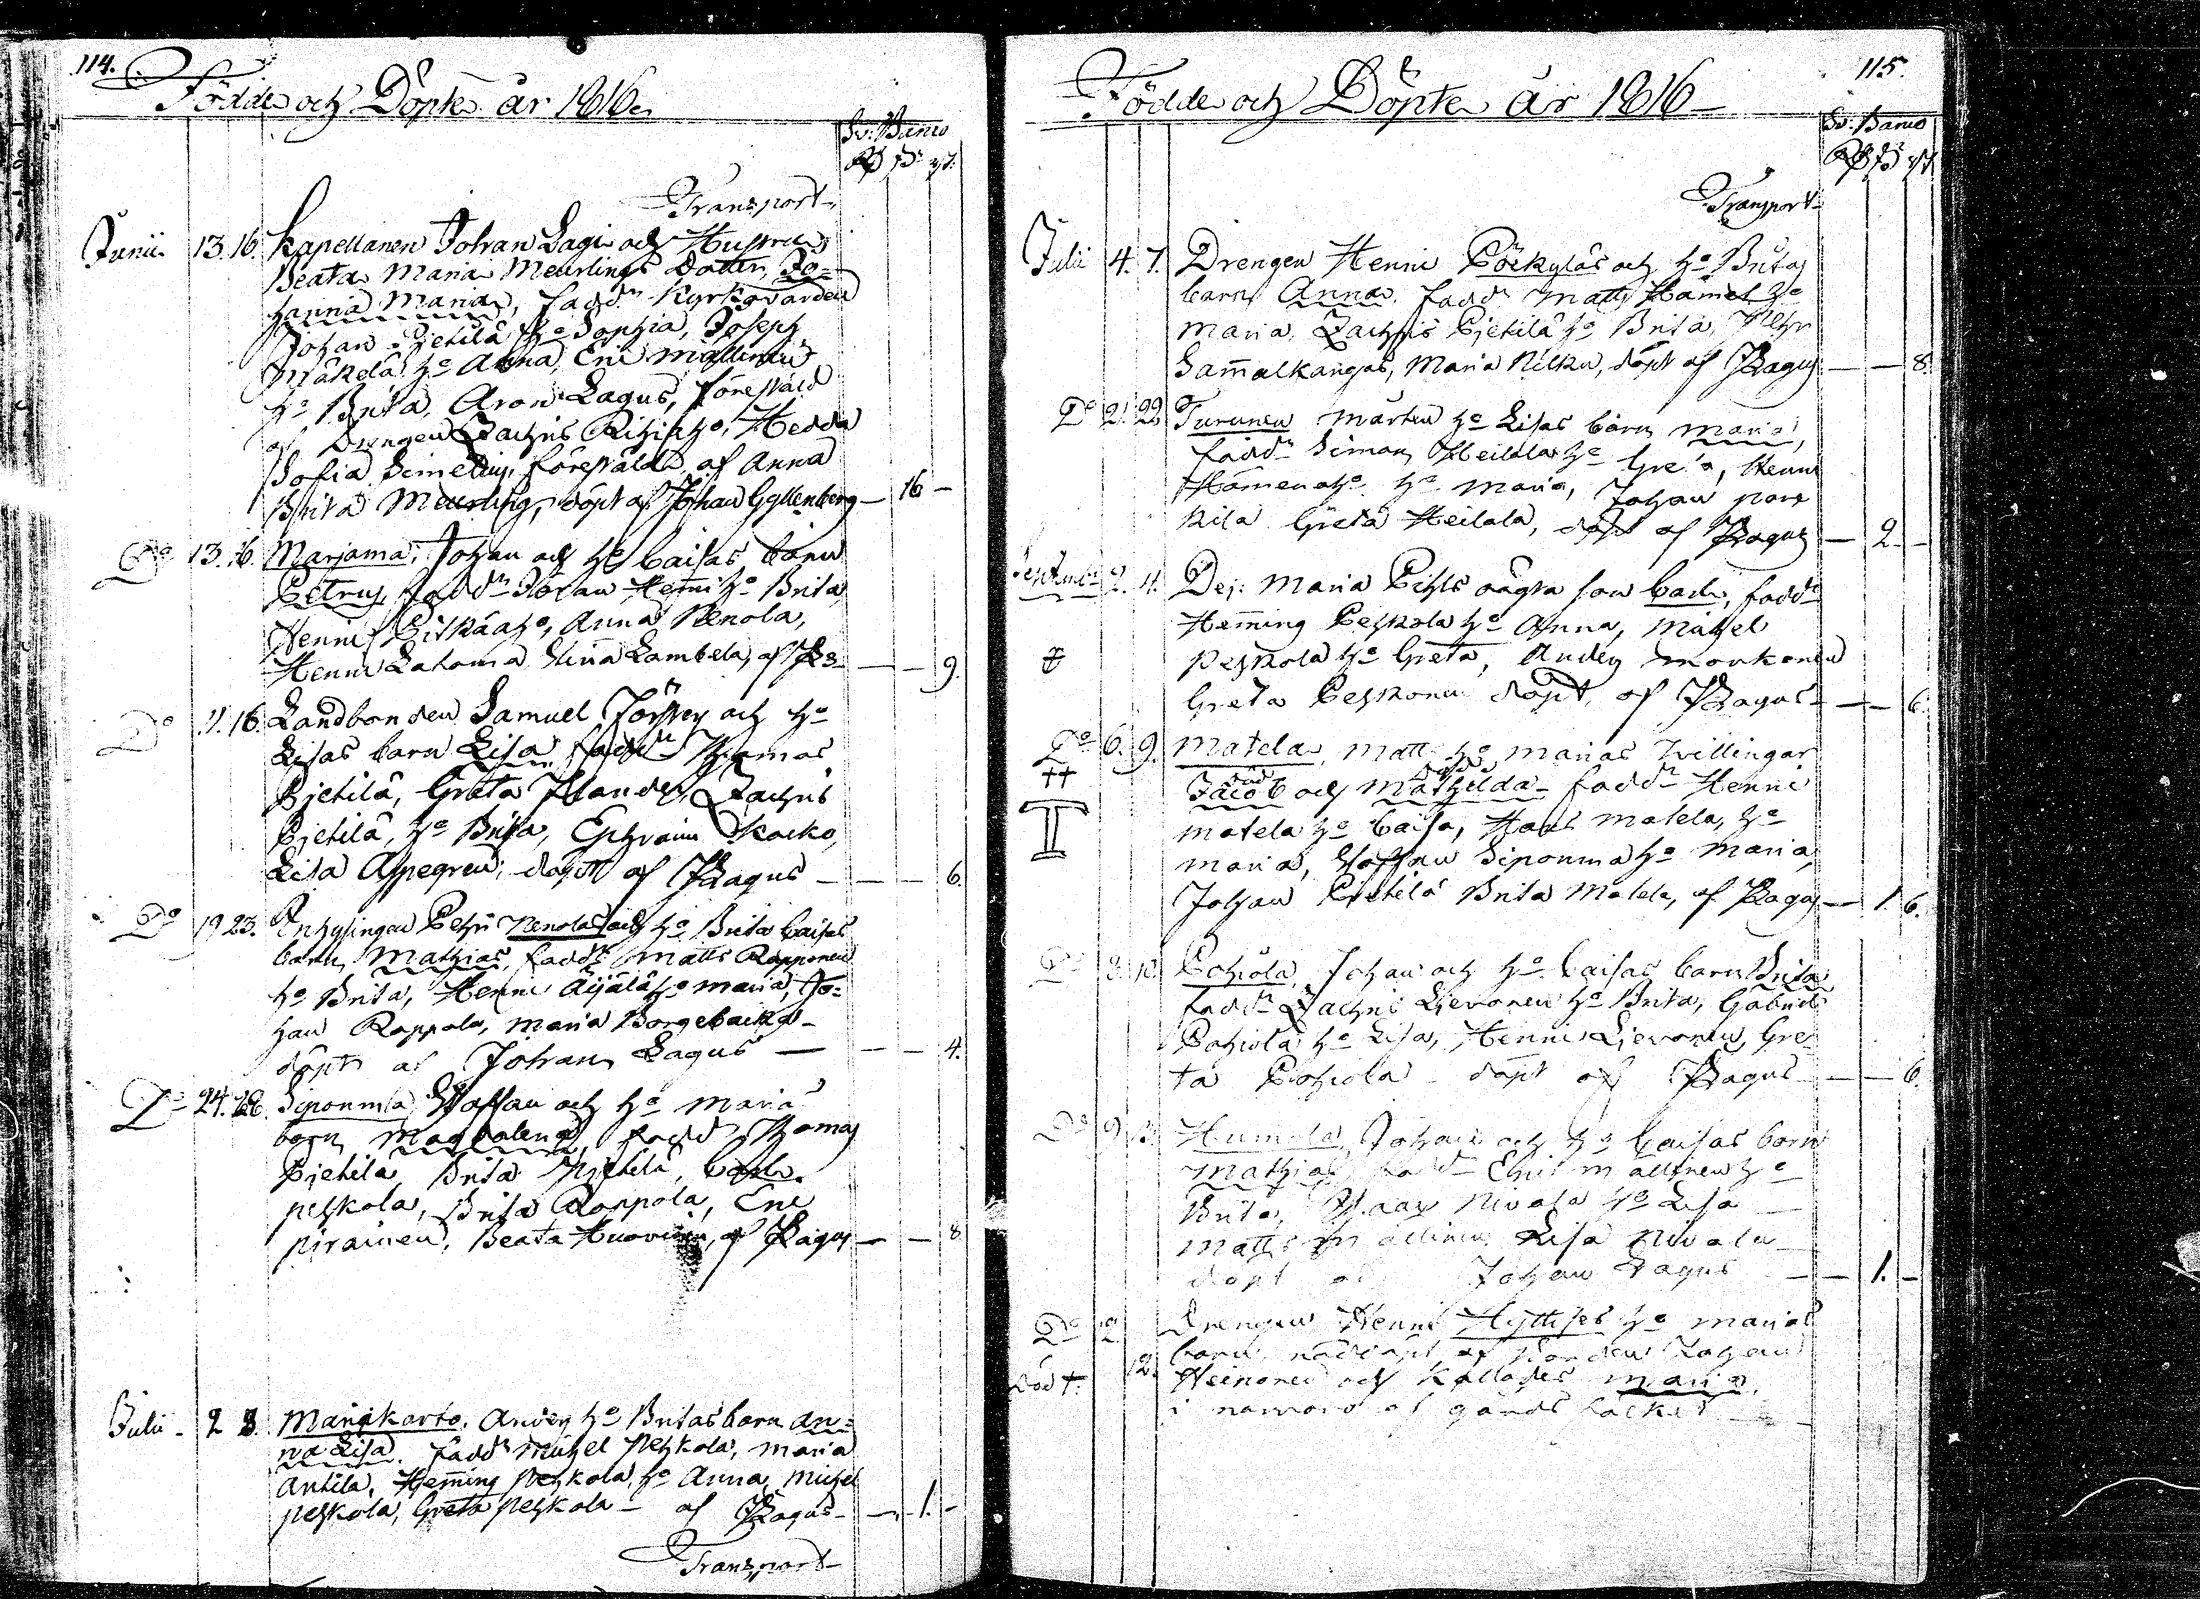 114.
Födde och Döpte år 1816
Sv: Banco
Transport
Junii 13. 16. Kapellanen Johan Lagi och Hustrus
Beata Maria Meurlings dotter, Jo=
hanna Maria, fadd. Kyrkovärden
Johan Pjetilä ho Sophia, Joseph
Mäkelä ho Anna, Eric Mällinen
ho Brita, Aron Lagus, förestäld
af Drengen Zachris ho, Hedda
Sofia Simelius, föreställd af Anna
Brita Meurling, döpt af Johan Gyllenberg — 16 —
Do 13. 16. Marjama, Johan och ho Caisas barn
Petrus, fadd. Johan Henni ho Brita
Henric Pitkä ho, Anna Nenola,
Henric Lahoma, Lambela, af — — 9.
Do 11. 16. Landbonden Samuel och ho
Lisas barn Lisa, fadd. Thomas
Pjetilä, Greta Flander, Zachris
Pjetilä, ho Brita, Ephraim Kacko,
Lisa Aspegren, döpt af JLagus — — — 6.
Do 19 23. Inhysingen Petri Nenolas och ho Brita Caisas
barn Mathias, fadd. Matts Rapponen
ho Brita, Henric Äijälä ho Maria, Jo=
han Rappola, Maria Borgebacka
döpt af Johan Lagus — — — 4.
Do 24. 28. Siponmla, Staffan och ho Maria
barn Magdalena, fadd. Thomas
Pjetilä, Brita Pjetilä, Carl
Peskola, Brita Rappola, Eric
Pirainen, Beata Huovinen, af JLagus — — 8
Julii 2 8. Mariakarto, Anders ho Britas barn An=
na Lisa, fadd. Michel Peskola, Maria
Antila, Hemming Peskola, ho Anna, Michel
Peskola, Greta Peskola — af JLagus — — 1. —
Transport
115.
Födde och Döpte år 1816
Sv: Banco
Transport
Julii 4. 7. Drengen Henric Pöckyläs och ho Britas
barn Anna, fadd. Matts Hämet ho
Maria, Zachris Pjetilä ho Brita, Petr
Sammalkangas, Maria Nilku, döpt af JLagus — — 8.
Do 21. 22. Turunen Mårten ho Lisas barn Maria,
fadd. Simon Heilala ho Greta, Henric
ho Maria, Johan
Greta Heilala, döpt af JLagus — 2. —
Septembr 2. 4. Dej: Maria Pihls oägta son Carl, fadd.
Hemming Peskola ho Anna, Michel
Peskola ho Greta, Anders Monkonen
Greta Peskonen döpt af JLagus — — 6.
Do 6. 9. Matela, Matts ho Marias Tvillingar
död död
Jacob och Mathilda — fadd. Henric
Matela ho Caisa, Hans Matela, ho
Maria, Staffan Siponma ho Maria,
Johan Pietilä Brita Matela, af JLagus — 1. 6.
Do 8. 10. Pohiola, Johan och ho Caisas barn Brita
fadd. Zachris Lievonen ho Brita, Gabriel
Pohiola ho Lisa, Henric Lievonen, Gre
ta Pohiola — döpt af JLagus — — 6
Do 9. 13. Humola, Johan och ho Caisas barn
Mathias, fadd. Eric Mällinen ho
Brita, Isaac Nivala ho Lisa —
Matts Mällinen Lisa Nivala
döpt af Johan Lagus — — 1. —
Do 12. Drengen Henric Hyttises ho Marias
barn, nöddöpt af Bonden Johan
död †. 12. Heinonen och kallades Maria,
i närvaro af gårds folket —